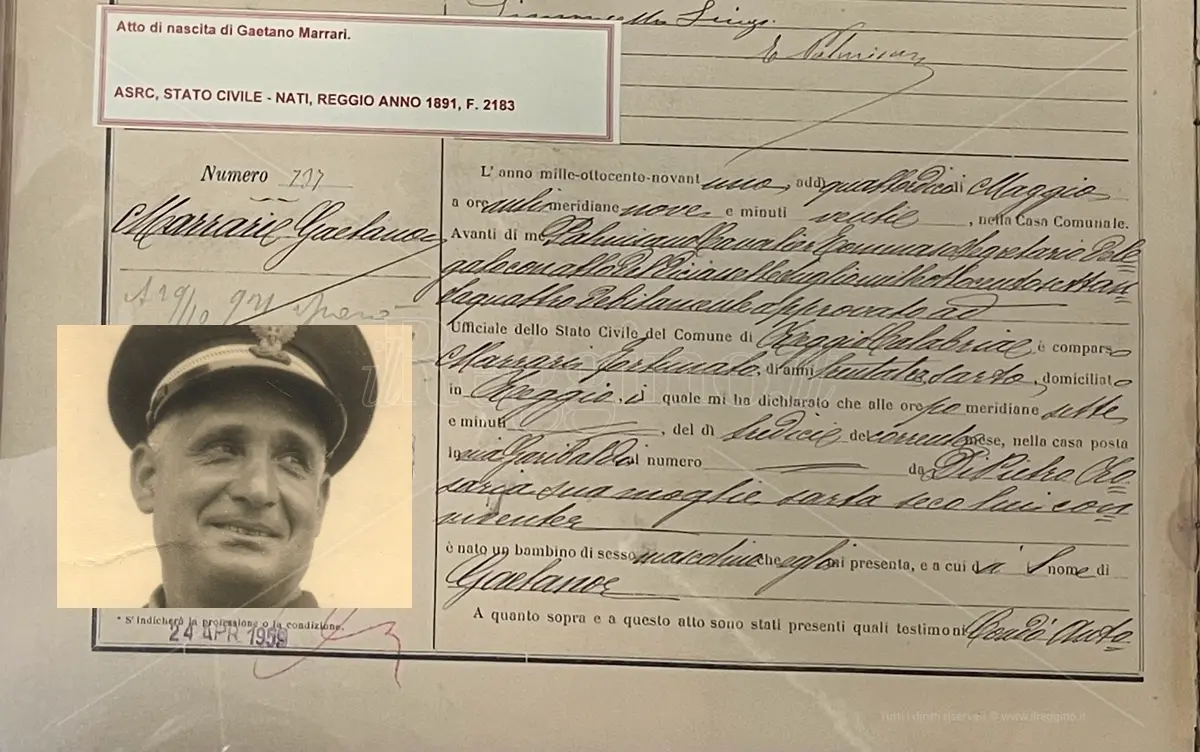 Atto di nascita di Gaetano Marrari.
ASRC, STATO CIVILE - NATI, REGGIO ANNO 1891, F. 2183
Numero 737
Marrari Gaetano
L' anno mille-ottocento-novant uno, addì quattordici di Maggio
a ore anti meridiane nove e minuti venti, nella Casa Comunale.
Avanti di me Palmisano Cavalier Tommaso Segretario Dele=
gato con atto del
taquattro debitamente approvato ad
Ufficiale dello Stato Civile del Comune di Reggio Calabria, è comparso
Marrari Fortunato, di anni trentatre, sarto, domiciliato
in Reggio, il quale mi ha dichiarato che alle ore po meridiane sette
e minuti, del dì tredici del corrente mese, nella casa posta
in via Garibaldi al numero da Di Pietro Ro=
saria sua moglie sarta seco lui con=
vivente
è nato un bambino di sesso mascolino che egli mi presenta, e a cui dà il nome di
Gaetano
A quanto sopra e a questo atto sono stati presenti quali testimoni Cordò Anto=
* S' indicherà la professione o la condizione.
24 APR 1959
ilReggino.it
Tutti i diritti riservati © www.ilreggino.it